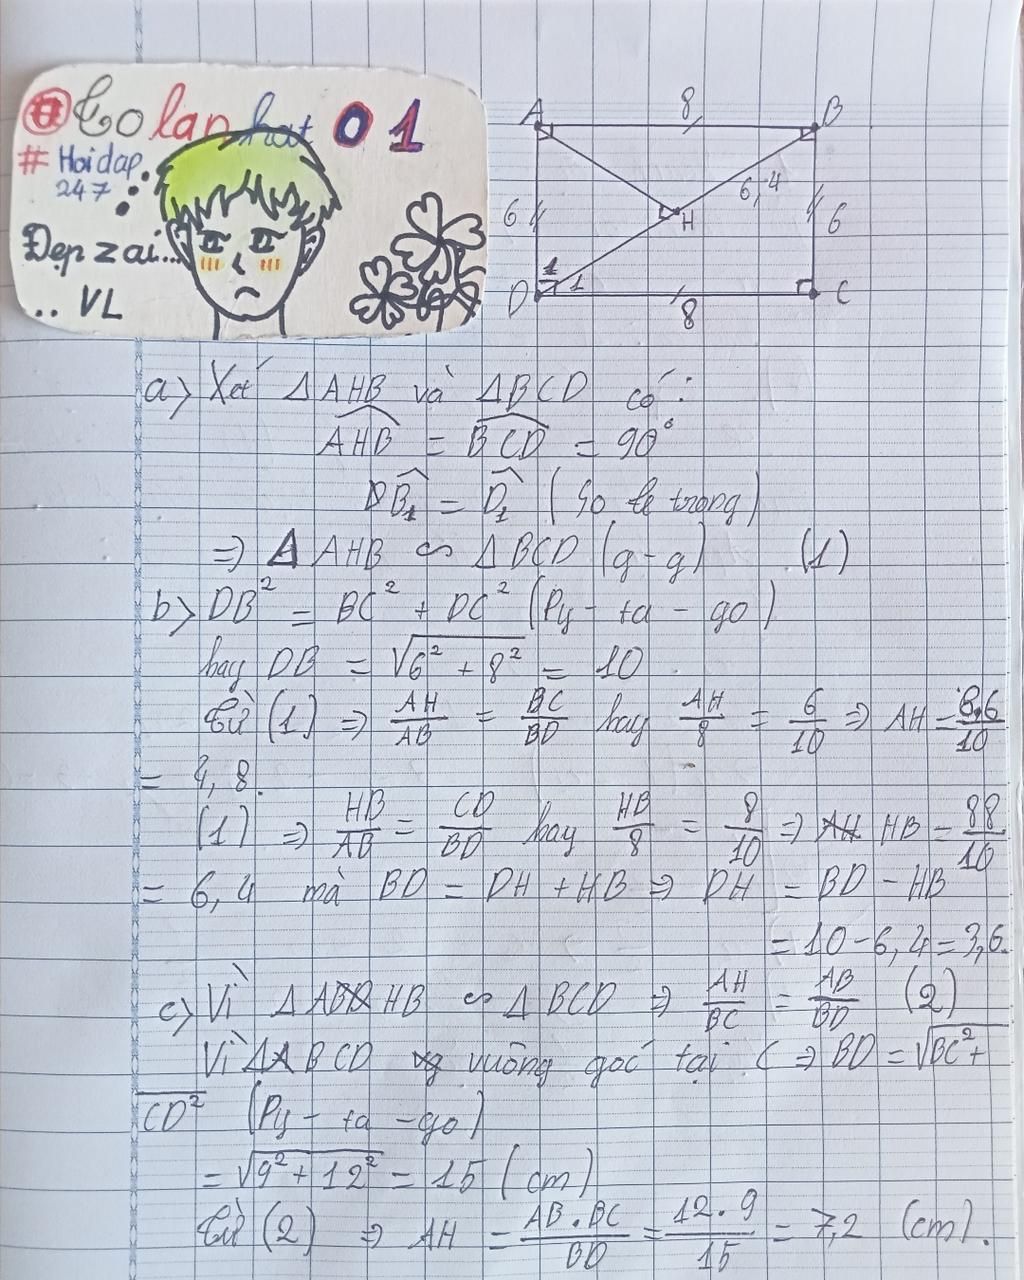 @Colanhat 01
# Hoidap
247
Đẹp zai...
.. VL
A 8 B
6 H 6,4 6
1
D 1 8 C
a> Xét ΔAHB và ΔBCD có:
AHB = BCD = 90°
B̂₁ = D̂₁ (So le trong)
=> Δ AHB ∽ ΔBCD (g-g) (1)
b> DB² = BC² + DC² (Py-ta-go)
hay DB = √6² + 8² = 10
Từ (1) => AH/AB = BC/BD hay AH/8 = 6/10 => AH = 8.6/10
= 4,8.
(1) => HB/AB = CD/BD hay HB/8 = 8/10 => HB = 88/10
= 6,4 mà BD = DH + HB => DH = BD - HB
= 10 - 6,4 = 3,6.
c> Vì Δ AHB ∽ Δ BCD => AH/BC = AB/BD (2)
Vì ΔBCD vuông góc tại C => BD = √BC² +
CD² (Py-ta-go)
= √9² + 12² = 15 (cm)
Từ (2) => AH = AB.BC/BD = 12.9/15 = 7,2 (cm).